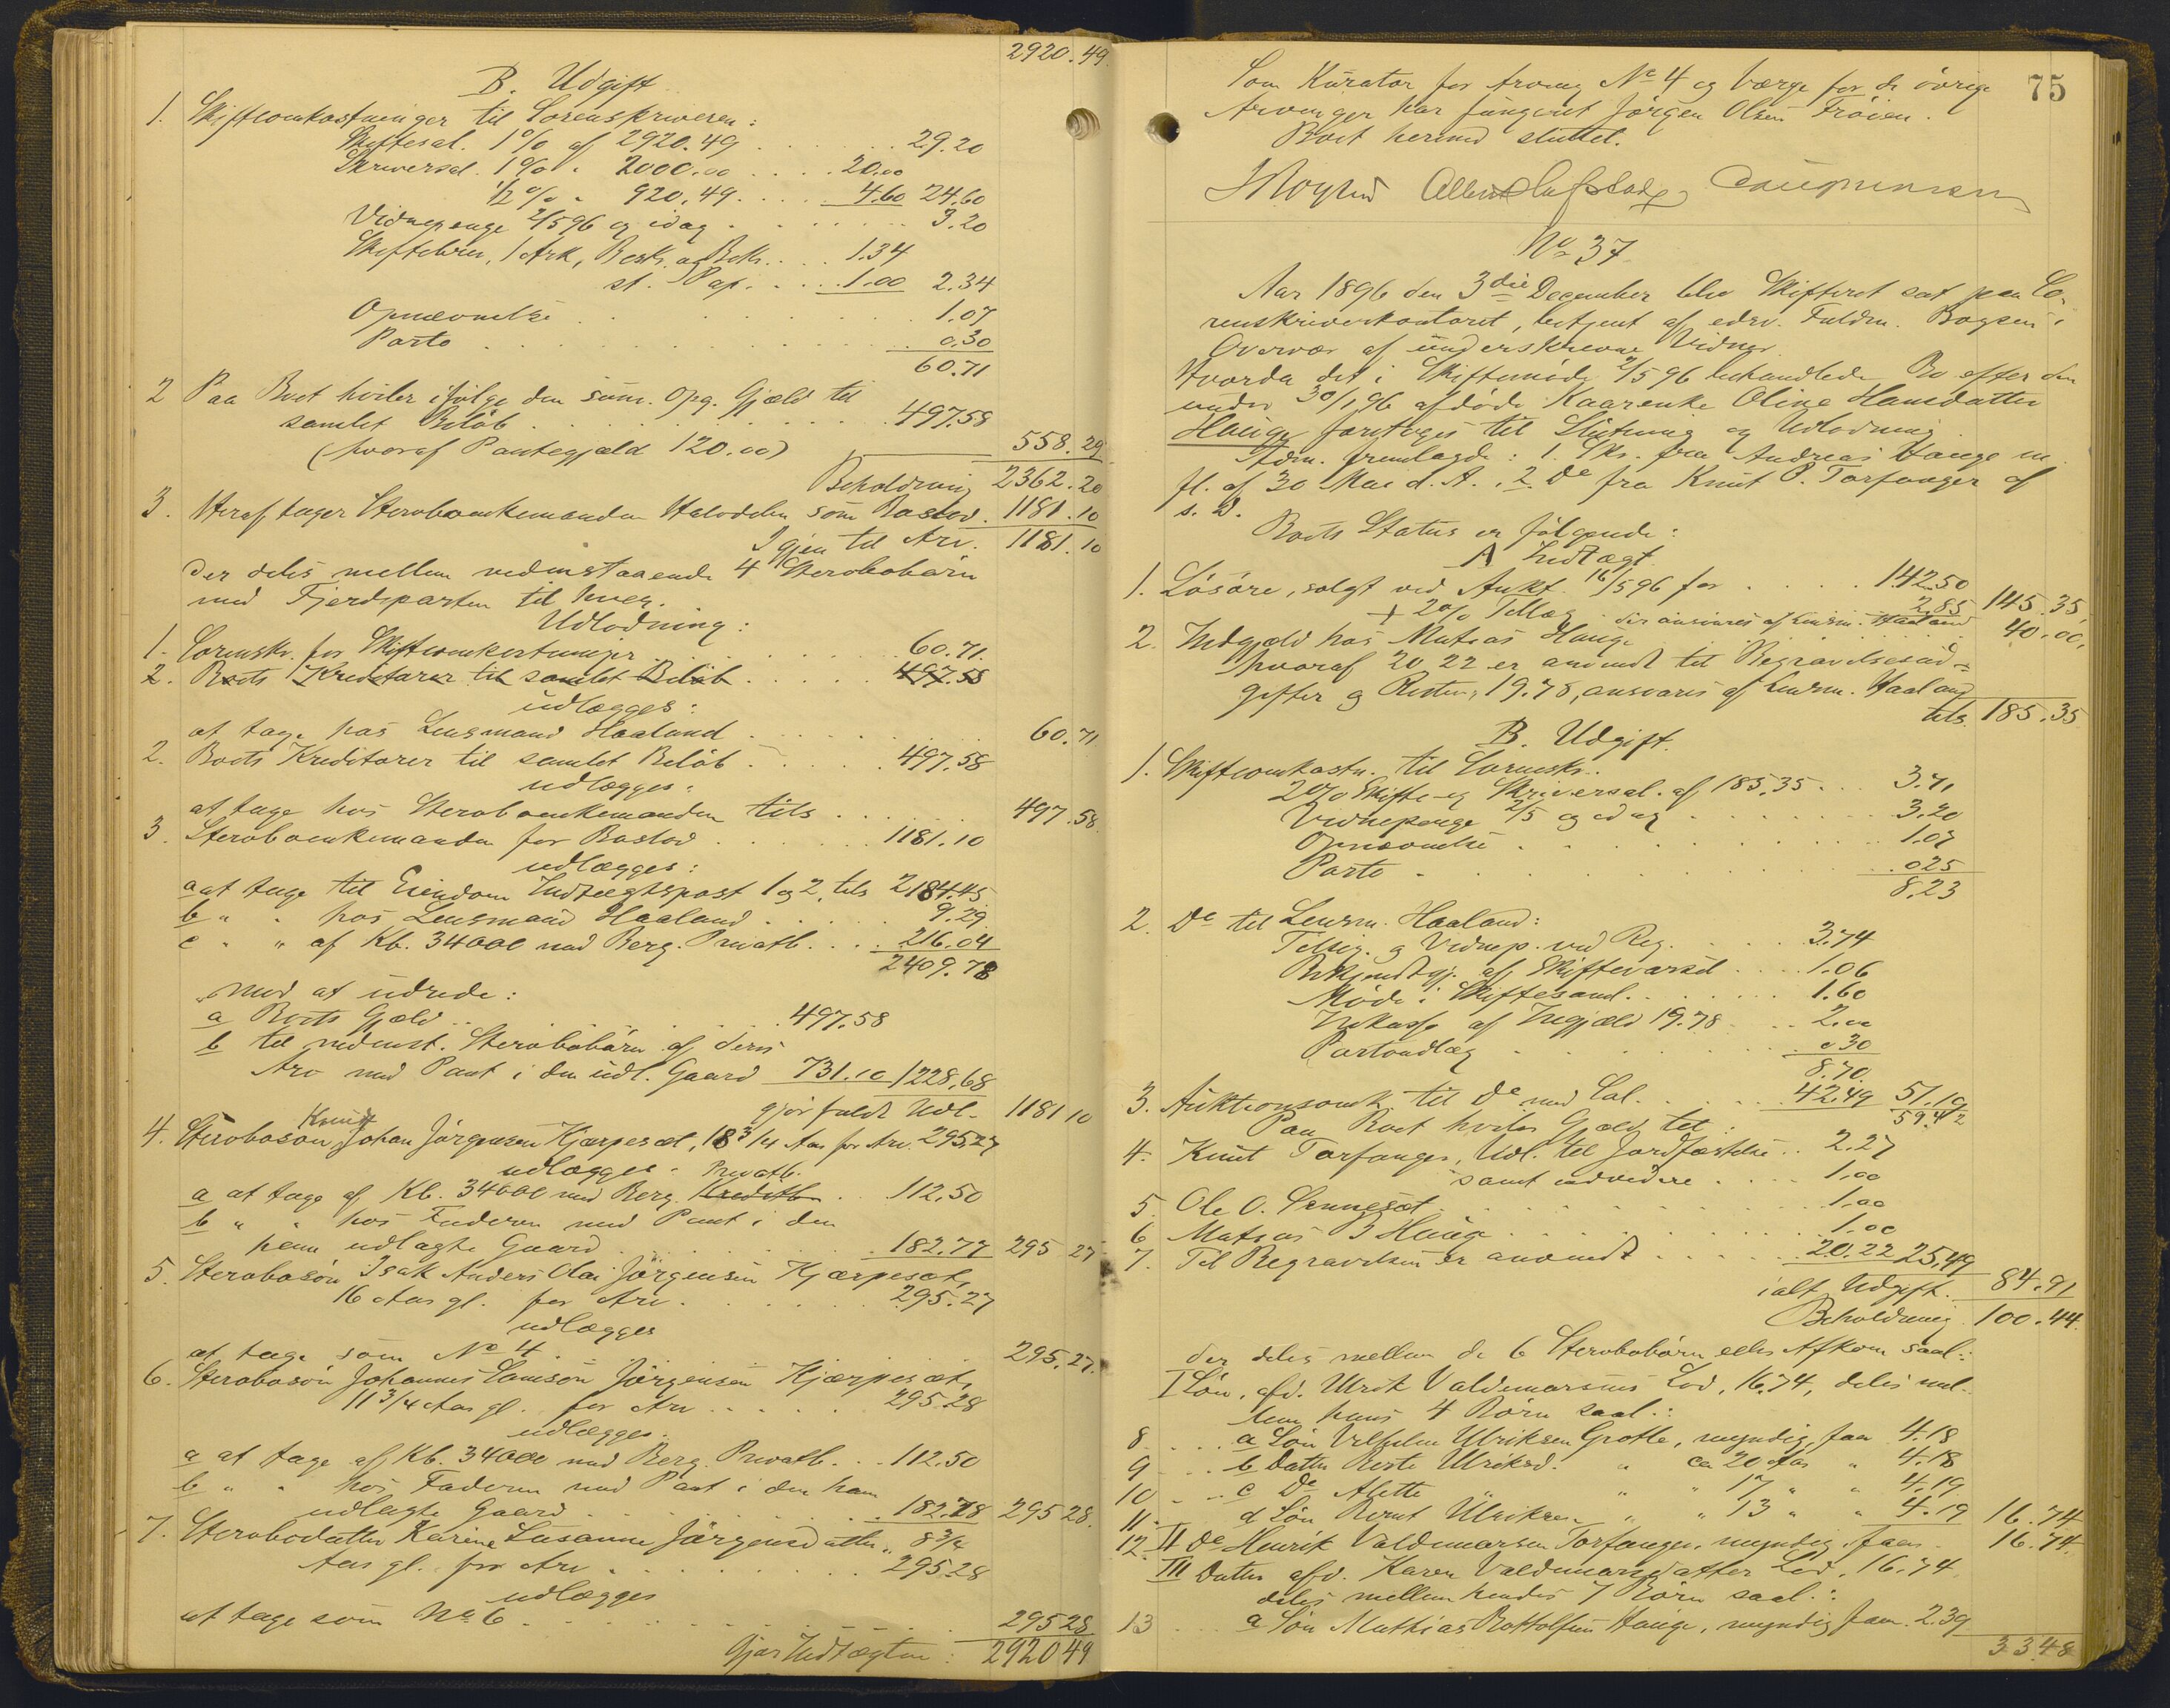 2920.49.
B. Udgift
1. Skifteomkostninger til Sorenskriveren:
Skiftesal. 1% af 2920.49 . . . . . 29.20
Skriversal. 1% " 2000.00 . . . . 20.00
1/2 % " 920.49 . . . . . 4.60 24.60
Vidnepenge 2/5 96 og idag . . . . . . 3.20
Skiftebrev, 1 Ark, Besk. og Bek. . . 1.34
st. Pap. . . . 1.00 2.34
Opnævnelse . . . . . . . 1.07
Porto . . . . . . . . . 0.30
60.71
2 Paa Boet hviler ifölge den summ. Opg. Gjæld til
samlet Belöb . . . . . . . . . 497.58
(hvoraf Pantegjæld 120.00) 558.29
Beholdning 2362.20
3. Heraf tager Sterboenkemanden Halvdelen som Boslod. 1181.10
Igjen til Arv. 1181.10
der deles mellem nedenstaaende 4 Sterbobörn
med Fjerdeparten til hver.
Udlodning:
1. Sorenskr. for Skifteomkostninger . . . . . 60.71.
2. Boets Kreditorer til samlet Belöb . . . . . 497.58
udlægges:
at tage hos Lensmand Haaland . . . . . . . . 60.71
2. Boets Kreditorer til samlet Belöb . . . . . 497.58
udlægges:
at tage hos Sterboenkemanden tils . . . . . . 497.58.
3. Sterboenkemanden for Boslod . . . . . . 1181.10
udlægges:
a at tage til Eiendom Indtægtspost 1 og 2, tils 2184.45
b " " hos Lensmand Haaland . . . . . . 9.29
c " " af Kb. 34000 med Berg. Privatb. . . . 216.04
2409.78
mod at udrede:
a Boets Gjæld . . . . . . . 497.58
b til nedenst. Sterbobörn af deres
Arv med Pant i den udl. Gaard 731.10 1228.68
gjör fuldt Udl. 1181 10
4. Sterbosön Knut Johan Jörgensen Kjærpesæt, 18 3/4 Aar for Arv. 295.27
udlægges. Privatb.
a at tage af Kb. 34000 med Berg. Kreditb. . . 112.50
b " " hos Faderen med Pant i den
ham udlagte Gaard . . . . . . . . . 182.77 295 27
5. Sterbosön Isak Anders Olai Jörgensen Kjærpesæt,
16 Aar gl. for Arv . . . . . . . 295.27
udlægges
at tage som No 4 . . . . . . . . . . 295.27.
6. Sterbosön Johannes Samson Jörgensen Kjærpesæt,
11 3/4 Aar gl. for Arv . . . . . 295.28
udlægges.
a at tage af Kb. 34000 med Berg. Privatb. . . 112.50
b " " hos Faderen med Pant i den ham
udlagte Gaard . . . . . . . . . . 182.78 295 28.
7. Sterbodatter Karine Susanne Jörgensdatter, 8 3/4
Aar gl. for Arv . . . . . . . . . 295.28
udlægges
at tage som No 6 . . . . . . . . . . . 295 28
Gjör Indtægten: 2920 49
75
Som Kurator for Arving No 4 og Værge for de övrige
Arvinger har fungeret Jörgen Olsen Fröien.
Boet hermed sluttet.
No 37
Aar 1896 den 3die December blev Skifteret sat paa So-
renskriverkontoret, betjent af edsv. Fuldm. Bogsen i
Overvær af underskrevne Vidner.
Hvorda det i Skiftemöde 2/5 96 behandlede Bo efter den
under 30/1 96 afdöde Kaarenke Oline Hansdatter
Hauge foretoges til Slutning og Udlodning.
Adm. fremlagde: 1. Skr. fra Andreas Hauge m.
fl. af 30 Mai d. A., 2. Do fra Knut P. Torfanger af
s. D.
Boets Status er fölgende:
A Indtægt.
1. Lösöre, solgt ved Aukt. 16/5 96 for . . . . . 142.50
+ 2% Tillæg . der ansvares af Lensm. Haaland 2.85 145.35,
2. Indgjæld hos Matias Hauge . . . . . . . . . . 40.00,
hvoraf 20.22 er anvendt til Begravelsesud-
gifter og Resten, 19.78, ansvares af Lensm. Haaland
tils. 185.35
B. Udgift.
1. Skifteomkostn. til Sorenskr.:
2% Skifte- og Skriversal. af 185.35 . . . 3.71
Vidnepenge 2/5 og idag . . . . . . . . 3.20
Opnævnelse . . . . . . . . . . 1.07
Porto . . . . . . . . . . . . 0 25
8.23
2. Do til Lensm. Haaland:
Tilsig. og Vidnep. ved Reg. . . . . 3.74
Bekjendtgj. af Skiftevarsel . . . . 1.06
Möde i Skiftesaml. . . . . . . 1.60
Inkasso af Indgjæld 19.78 . . . 2.00
Portoudlæg . . . . . . . . . 0 30
8.70
3. Auktionsomk. til Do med Sal. . . . . . 42.49 51.19
Paa Boet hviler Gjæld til: 59.42
4. Knut Torfanger, Udl. til Jordfæstelse . . 2.27
samt endvidere . . . . . 1.00
5. Ole O. Sennesæt . . . . . . . . . . . . . 1.00
6 Matias J Hauge . . . . . . . . . . . 1.00
7. Til Begravelsen er anvendt . . . . . . 20.22 25.49
ialt Udgift. 84.91
Beholdning 100.44.
der deles mellem de 6 Sterbobörn eller Afkom saal.:
I Sön, afd. Ulrik Valdemarsens Lod, 16.74, deles mel-
lem hans 4 Börn saal.:
8 . . . a Sön Vilhelm Ulriksen Grotle, myndig, faar 4.18
9 . . . b Datter Berte Ulriksd. " ca 20 Aar " 4.18
10 . . . c Do Alette " " " 17 " " 4.19
11. d Sön Bernt Ulriksen " " 13 " " 4.19 16.74
12. II Do Henrik Valdemarsen Torfanger, myndig, faar . 16.74.
III Datter afd. Karen Valdemarsdatter Lod, 16.74
deles mellem hendes 7 Börn saal.:
13 . . . a Sön Mathias Rottolfsen Hauge, myndig faar. 2.39
33.48